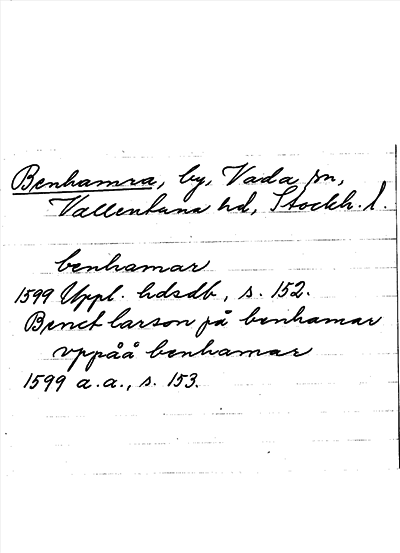 Benhamra, by, Vada sn,
Vallentuna hd, Stockh. l.
benhamar
1599 Uppl. hdsdb, s. 152.
Benct larson på benhamar
vppåå benhamar
1599 a.a., s. 153.